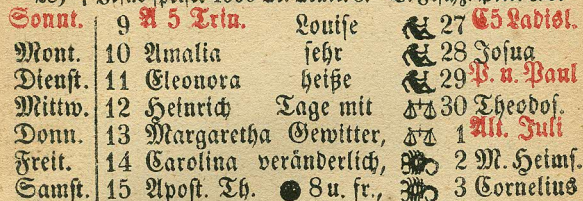 Sonnt. 9 A 5 Trin. Louise 27 C5 Ladisl.
Mont. 10 Amalia sehr 28 Josua
Dienst. 11 Eleonora heiße 29 P. u. Paul
Mittw. 12 Heinrich Tage mit 30 Theodos.
Donn. 13 Margaretha Gewitter, 1 Alt. Juli
Freit. 14 Carolina veränderlich, 2 M. Heims.
Samst. 15 Apost. Th. 8 u. fr., 3 Cornelius